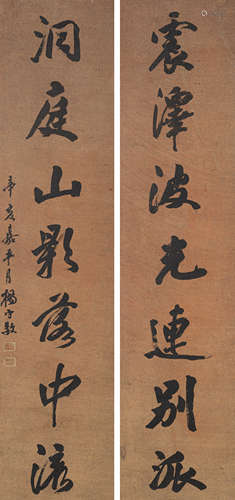 震澤波光連別派
洞庭山影落中流
辛亥嘉平月楊守敬